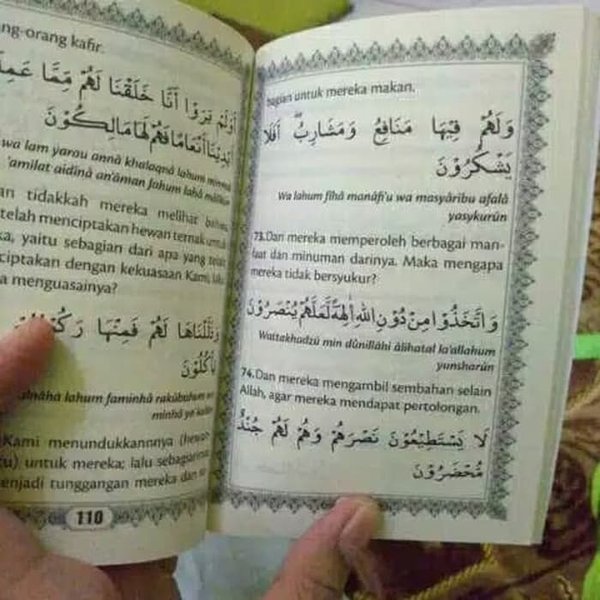 ng-orang kafir.
أَوَلَمْ يَرَوْا أَنَّا خَلَقْنَا لَهُمْ مِّمَّا عَمِلَ
أَيْدِينَا أَنْعَامًا فَهُمْ لَهَا مَالِكُونَ
wa lam yarau annâ khalaqnâ lahum mimmâ
'amilat aidînâ an'âman fahum lahâ mâlikûn
an tidakkah mereka melihat bahwa
telah menciptakan hewan ternak untuk
ka, yaitu sebagian dari apa yang telah
ciptakan dengan kekuasaan Kami, lalu
a menguasainya?
وَذَلَّلْنَاهَا لَهُمْ فَمِنْهَا
يَأْكُلُونَ
alnâhâ lahum faminhâ rakûbuhum
minhâ ya'kulûn
Kami menundukkannnya (hewan
tu) untuk mereka; lalu sebagiannya
enjadi tunggangan mereka dan
110
bagian untuk mereka makan.
وَلَهُمْ فِيْهَا مَنَافِعُ وَمَشَارِبُ ۗ أَفَلَا
يَشْكُرُوْنَ
Wa lahum fîhâ manâfi'u wa masyâribu afalâ
yasykurûn
73.Dan mereka memperoleh berbagai man-
faat dan minuman darinya. Maka mengapa
mereka tidak bersyukur?
وَاتَّخَذُوْا مِنْ دُوْنِ اللهِ اٰلِهَةً لَّعَلَّهُمْ يُنْصَرُوْنَ
Wattakhadzû min dûnillâhi âlihatal la'allahum
yunsharûn
74.Dan mereka mengambil sembahan selain
Allah, agar mereka mendapat pertolongan.
لَا يَسْتَطِيْعُوْنَ نَصْرَهُمْ وَهُمْ لَهُمْ جُنْدٌ
مُّحْضَرُوْنَ